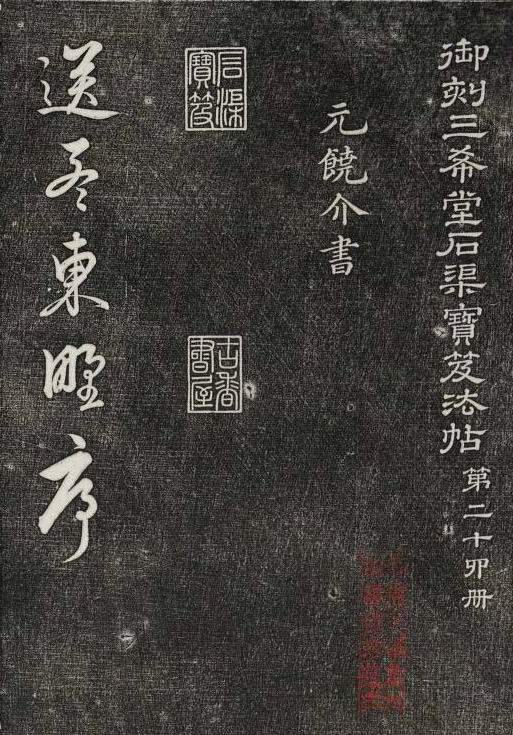 御刻三希堂石渠寶笈法帖 第二十四册
元饒介書
石渠寶笈
古香書屋
送孟東野序